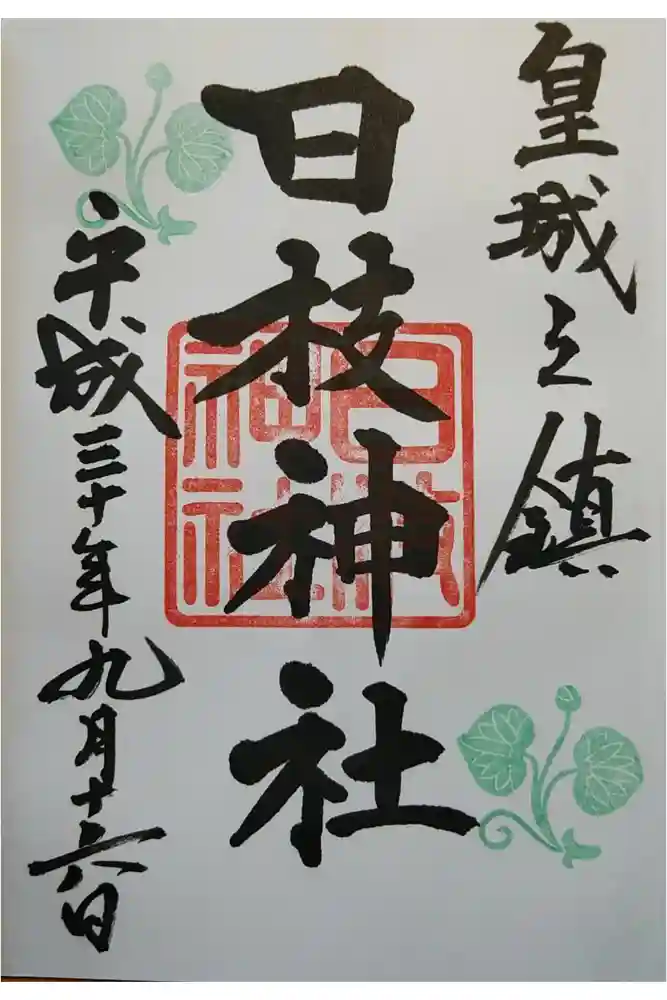 皇城之鎮
日枝神社
日枝
神社
平成三十年九月十六日